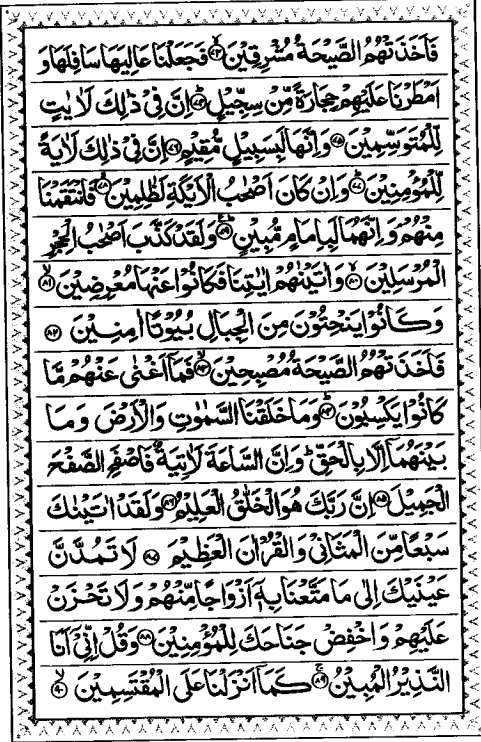 فَاَخَذَتْهُمُ الصَّيْحَةُ مُشْرِقِيْنَ ۙ﴿۷۳﴾ فَجَعَلْنَا عَالِيَهَا سَافِلَهَا وَ
اَمْطَرْنَا عَلَيْهِمْ حِجَارَةً مِّنْ سِجِّيْلٍ ؕ﴿۷۴﴾ اِنَّ فِيْ ذٰلِكَ لَاٰيٰتٍ
لِّلْمُتَوَسِّمِيْنَ ﴿۷۵﴾ وَاِنَّهَا لَبِسَبِيْلٍ مُّقِيْمٍ ﴿۷۶﴾ اِنَّ فِيْ ذٰلِكَ لَاٰيَةً
لِّلْمُؤْمِنِيْنَ ؕ﴿۷۷﴾ وَاِنْ كَانَ اَصْحٰبُ الْاَيْكَةِ لَظٰلِمِيْنَ ۙ﴿۷۸﴾ فَانْتَقَمْنَا
مِنْهُمْ ۘ وَاِنَّهُمَا لَبِاِمَامٍ مُّبِيْنٍ ؕ﴿۷۹﴾ وَلَقَدْ كَذَّبَ اَصْحٰبُ الْحِجْرِ
الْمُرْسَلِيْنَ ۙ﴿۸۰﴾ وَاٰتَيْنٰهُمْ اٰيٰتِنَا فَكَانُوْا عَنْهَا مُعْرِضِيْنَ ۙ﴿۸۱﴾
وَكَانُوْا يَنْحِتُوْنَ مِنَ الْجِبَالِ بُيُوْتًا اٰمِنِيْنَ ﴿۸۲﴾
فَاَخَذَتْهُمُ الصَّيْحَةُ مُصْبِحِيْنَ ۙ﴿۸۳﴾ فَمَاۤ اَغْنٰى عَنْهُمْ مَّا
كَانُوْا يَكْسِبُوْنَ ؕ﴿۸۴﴾ وَمَا خَلَقْنَا السَّمٰوٰتِ وَالْاَرْضَ وَمَا
بَيْنَهُمَاۤ اِلَّا بِالْحَقِّ ؕ وَاِنَّ السَّاعَةَ لَاٰتِيَةٌ فَاصْفَحِ الصَّفْحَ
الْجَمِيْلَ ﴿۸۵﴾ اِنَّ رَبَّكَ هُوَ الْخَلّٰقُ الْعَلِيْمُ ﴿۸۶﴾ وَلَقَدْ اٰتَيْنٰكَ
سَبْعًا مِّنَ الْمَثَانِيْ وَالْقُرْاٰنَ الْعَظِيْمَ ﴿۸۷﴾ لَا تَمُدَّنَّ
عَيْنَيْكَ اِلٰى مَا مَتَّعْنَا بِهٖۤ اَزْوَاجًا مِّنْهُمْ وَلَا تَحْزَنْ
عَلَيْهِمْ وَاخْفِضْ جَنَاحَكَ لِلْمُؤْمِنِيْنَ ﴿۸۸﴾ وَقُلْ اِنِّيْۤ اَنَا
النَّذِيْرُ الْمُبِيْنُ ۚ﴿۸۹﴾ كَمَاۤ اَنْزَلْنَا عَلَى الْمُقْتَسِمِيْنَ ۙ﴿۹۰﴾